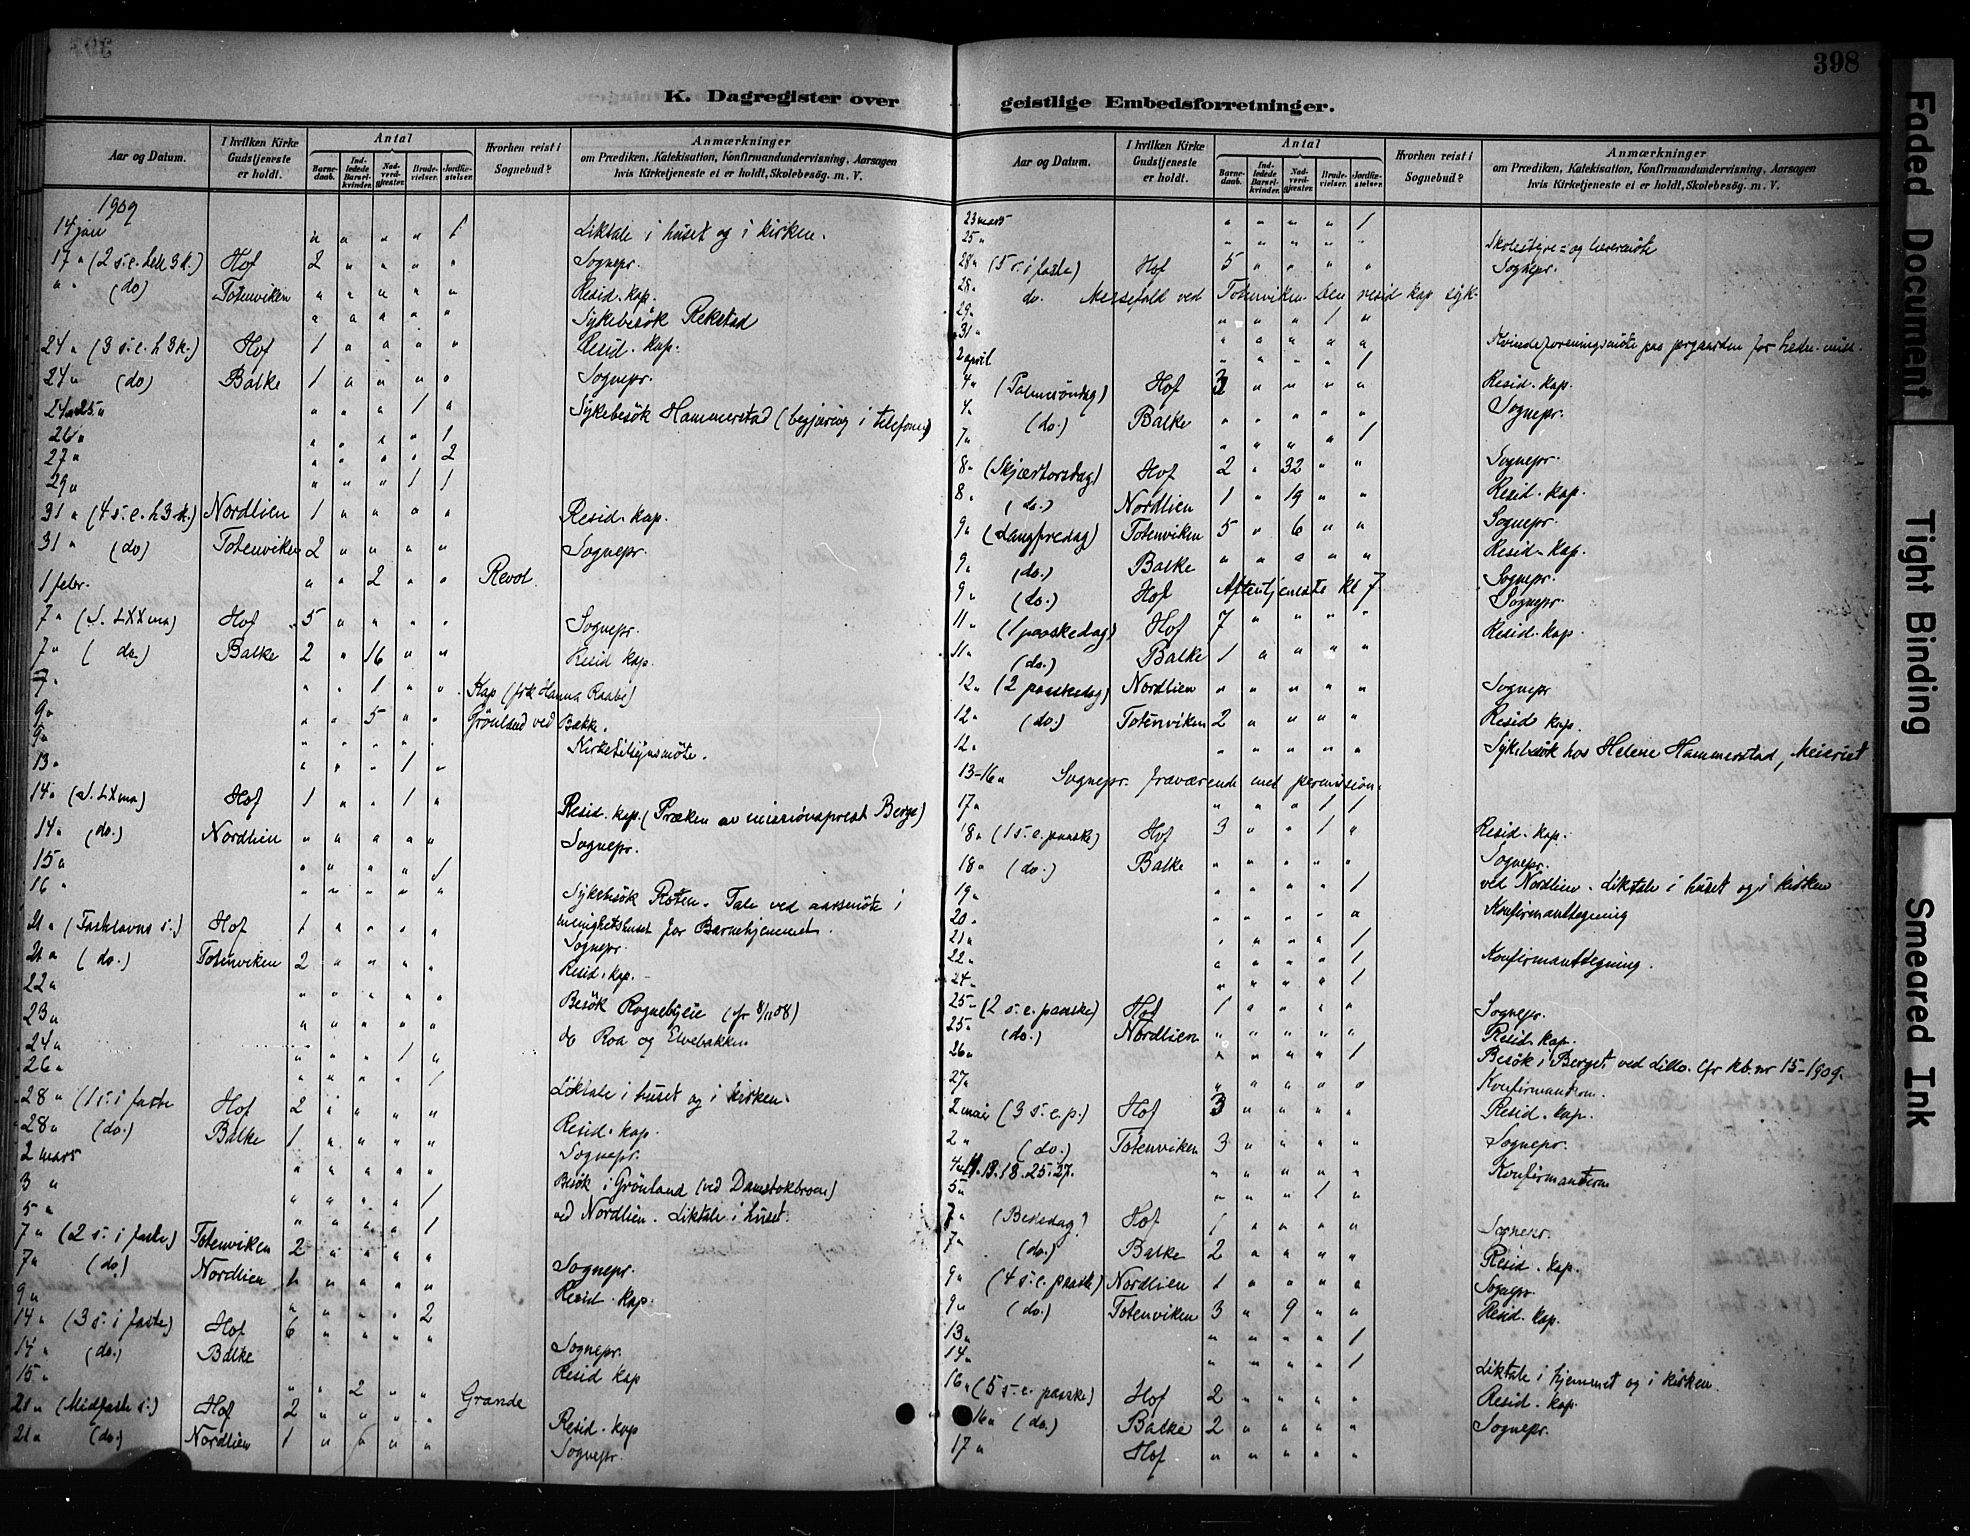 398
K. Dagregister over geistlige Embedsforretninger.
Aar og Datum. | I hvilken Kirke Gudstjeneste er holdt. | Antal | Barne-daab. | Ind-ledede Barsel-kvinder. | Nad-verd-gjester. | Brude-vielser. | Jordfæ-stelser. | Hvorhen reist i Sognebud? | Anmærkninger om Prædiken, Katekisation, Konfirmandundervisning, Aarsagen hvis Kirketjeneste ei er holdt, Skolebesøg. m. V.
1909
14 jan " " " " 1 Liktale i huset og i kirken.
17 " (2 s. e. hell 3 k.) Hof 2 " " " " Sognepr.
" " (do) Totenviken " " " " " Resid. kap.
" " " " " Sykebesök Rekstad
24 " (3 s. e. h 3 k.) Hof 1 " " " " Resid. kap.
24 " (do) Balke 1 " " " " Sognepr.
24 25 " " " " 1 " Sykebesök Hammerstad (begjæring i telefonen)
26 " " " " " 1
27 " " " " " 2
29 " " " " 1 1
31 " (4 s. e. h 3 k.) Nordlien 1 " " " " Resid. kap.
31 " (do) Totenviken 2 " " " " Sognepr.
1 febr. " " 2 " " Revol.
7 " (S. LXXma) Hof 5 " " " " Sognepr.
7 " (do.) Balke 2 " 16 " " Resid kap.
7 " " " 1 " " Kap (frk Hanna Raabe)
9 " " " 5 " " Grönland ved Bække.
9 " " " " " " Kirketilsynsmöte.
13 " " " " 1 "
14 " (S. LXma) Hof 1 " " 1 " Resid. kap. (Præken av missionsprest Berge)
14 " (do.) Nordlien " " " " " Sognepr.
15 " " " " " 1
16 " " " " " " Sykebesök Roten. Tale ved aarsmöte i
menighetshuset for Barnehjemmet.
21 " (Fastelavns s.) Hof 1 " " " " Sognepr.
21 " (do.) Totenviken 2 " " " " Resid. kap.
22 " " " " " " Besök Rognebyeie (fr 8/11 08)
23 " " " " " " do Roa og Elvebakken
24 " " " " 1 "
26 " " " " " 1 Liktale i huset og i kirken.
28 " (1 s. i faste Hof 2 " " " " Resid. kap.
28 " (do.) Balke 1 " " " " Sognepr.
2 mars " " " " " Besök i Grönland (ved Damstokbroen)
3 " " " " " 1 ved Nordlien. Liktale i huset.
5 " " " " " 1
7 " (2 s. i faste) Totenviken 2 " " " " Sognepr.
7 " (do) Nordlien 1 " " " " Resid. kap.
9 " " " " " 2
14 " (3 s. i faste) Hof 6 " " " " Sognepr.
14 " (do.) Balke Resid kap
15 " " " 2 " " Grande
21 " (Midfaste s.) Hof 2 " " " " Resid. kap
21 " (do.) Nordlien 1 " " " " Sognepr.
Aar og Datum. | I hvilken Kirke Gudstjeneste er holdt. | Antal | Barne-daab. | Ind-ledede Barsel-kvinder. | Nad-verd-gjester. | Brude-vielser. | Jordfæ-stelser. | Hvorhen reist i Sognebud? | Anmærkninger om Prædiken, Katekisation, Konfirmandundervisning, Aarsagen hvis Kirketjeneste ei er holdt, Skolebesøg. m. V.
23 mars " " " " 1
25 " " " " " " Skolestyre= og lærermöte
28 " (5 s. i faste) Hof 5 " " " " Sognepr.
28 " do. Messefald ved Totenviken. Den resid kap syk.
29 " " " " 1 "
31 " " " " " " Kvindeforeningsmöte paa prgaarden for hedn. miss.
2 april " " " " 1
4 " (Palmesöndag) Hof 3 " " " " Resid. kap.
4 " (do.) Balke " " " " " Sognepr.
7 " " " " " 1
8 " (Skjærtorsdag) Hof 2 " 32 " " Sognepr.
8 " (do.) Nordlien 1 " 19 " " Resid. kap.
9 " (Langfredag) Totenviken 5 " 6 " " Sognepr.
9 " (do.) Balke " " " " " Resid. kap.
9 " (do.) Hof Aftentjeneste kl 7 Sognepr.
11 " (1 paaskedag) Hof 7 " " " " Sognepr.
11 " (do.) Balke 1 " " " " Resid. kap.
12 " (2 paaskedag) Nordlien " " " " " Sognepr
12 " (do.) Totenviken 2 " " " " Resid kap.
12 " " " " " " Sykebesök hos Helene Hammerstad, Meieriet
13-16 " Sognepr. fraværende med permission.
17 " " " " 1 1
18 " (1 s. e. paaske) Hof 3 " " 1 " Resid. kap.
18 " (do.) Balke " " " " " Sognepr.
19 " " " " " 1 ved Nordlien. Liktale i huset og i kirken
20 " " " " " " Konfirmanttegning
21 " " " " " 1
22 " " " " " 1 Konfirmanttegning.
24 " " " " " 1
25 " (2 s. e. paaske) Hof 1 " " " " Sognepr.
25 " (do.) Nordlien " " " " " Resid. kap.
26 " " " " " 1 Besök i Berget ved Lillo. Cfr kb. nr 15-1909.
27 " " " " " " Konfirmantern.
2 mai (3 s. e. p.) Hof 3 " " " " Resid. kap.
2 " (do.) Totenviken 3 " " " " Sognepr.
4 " 11. 13. 18. 25. 27. " " " " " Konfirmantern
5 " " " " 1 "
7 " (Bededag) Hof 1 " " " " Sognepr.
7 " (do.) Balke 2 " " " " Resid. kap.
9 " (4 s. e. paaske) Nordlien 1 " " " " Sognepr.
9 " (do.) Totenviken 3 " 9 " " Resid. kap.
13 " " " " " 1
14 " " " " " 1 Liktale i hjemmet og i kirken.
16 " (5 s. e. paaske) Hof 2 " " " " Resid. kap.
16 " (do.) Balke 2 " " " " Sognepr.
17 " Hof " " " " "
Faded Document
Tight Binding
Smeared Ink